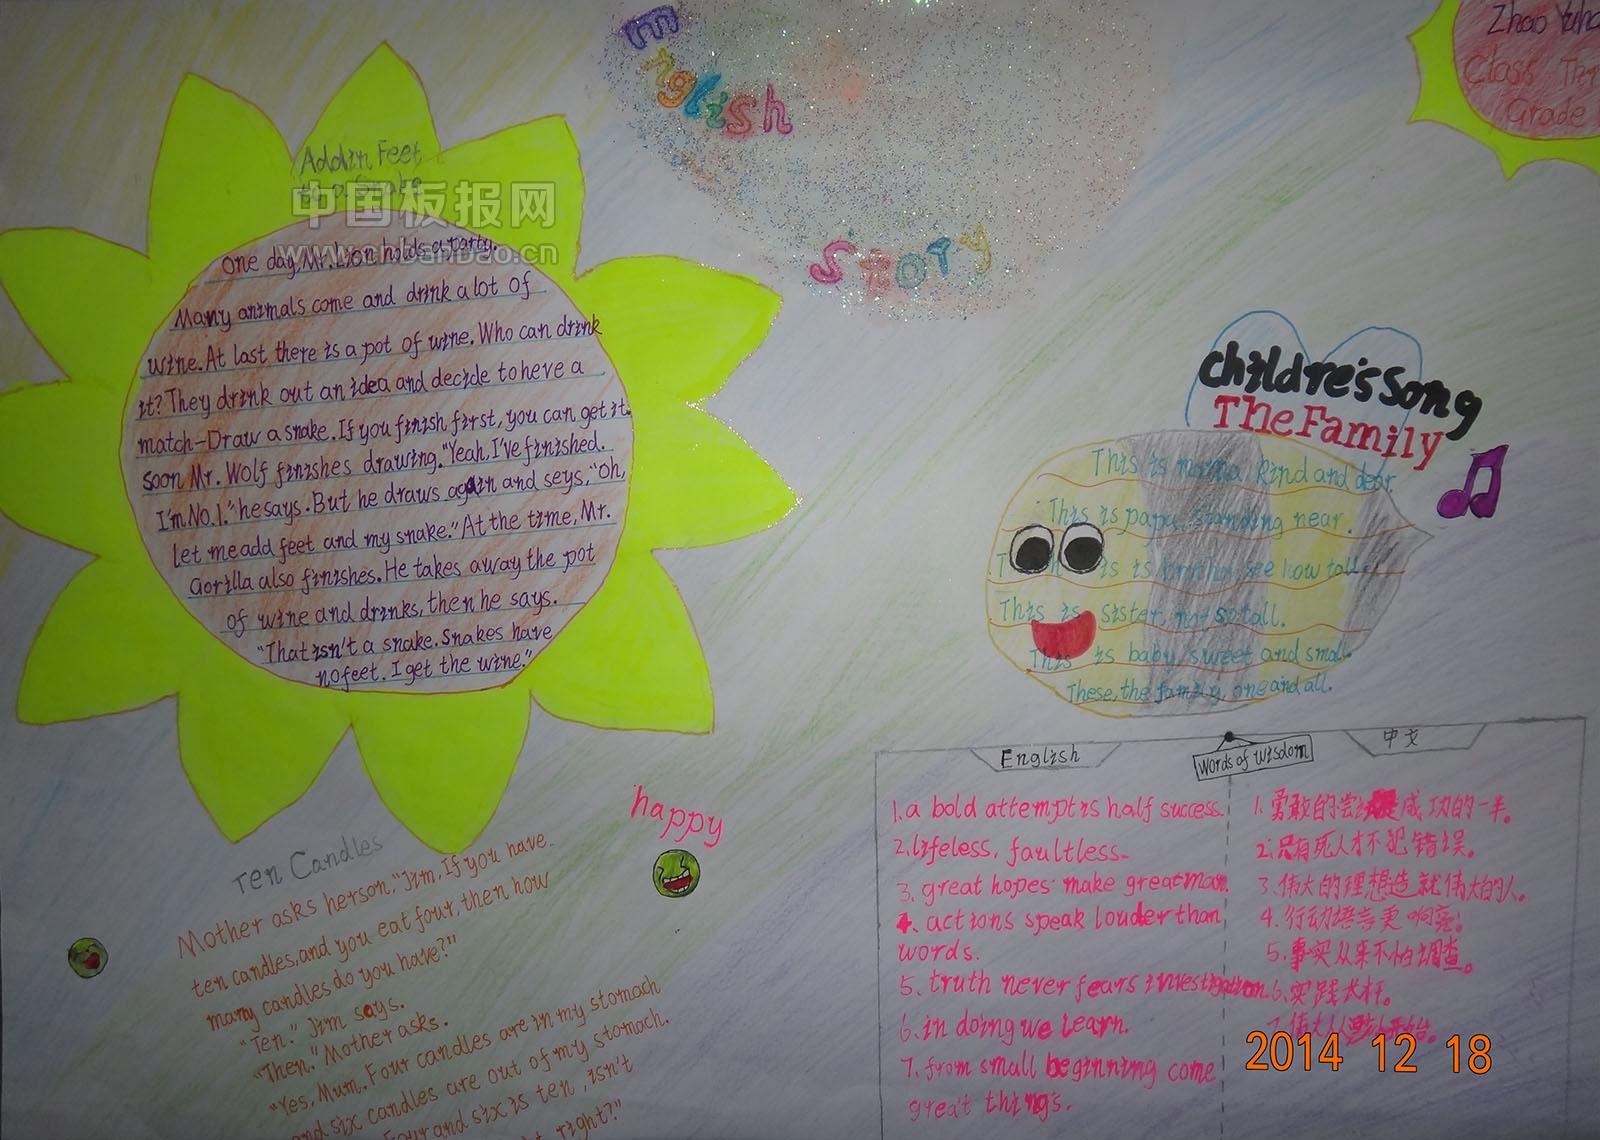 English
Story
Zhao Yuha
Class Thr
Grade
Addin Feet
to a Snake
中国板报网
www.chbanbao.cn
One day, Mr. Lion holds a party.
Many animals come and drink a lot of
wine. At last there is a pot of wine. Who can drink
it? They drink out an idea and decide to heve a
match-Draw a snake. If you finish first, you can get it.
soon Mr. Wolf finishes drawing. "Yeah, I've finished.
I'm No.1." he says. But he draws again and seys, "oh,
let me add feet and my snake." At the time, Mr.
Gorilla also finishes. He takes away the pot
of wine and drinks, then he says.
"That isn't a snake. Snakes have
no feet. I get the wine."
childre's Song
The Family
This is mama, kind and dear.
This is papa, standing near.
is brother, see how tall.
This is sister, not so tall.
This is baby, sweet and small.
These, the family, one and all.
happy
Ten Candles
Mother asks her son, "Jim, If you have
ten candles, and you eat four, then how
many candles do you have?"
"Ten." Jim says.
"Then." Mother asks.
"Yes, Mum. Four candles are in my stomach
and six candles are out of my stomach.
Four and six is ten, isn't
right?"
English
Words of wisdom
中文
1. a bold attempt is half success.
2. lifeless, faultless.
3. great hopes make great man.
4. actions speak louder than
words.
5. truth never fears investigation.
6. in doing we learn.
7. from small beginning come
great things.
1. 勇敢的尝试是成功的一半。
2. 只有死人才不犯错误。
3. 伟大的理想造就伟大的人。
4. 行动
5. 事实从来不怕调查。
6. 实践长杆。
7. 伟大
2014 12 18